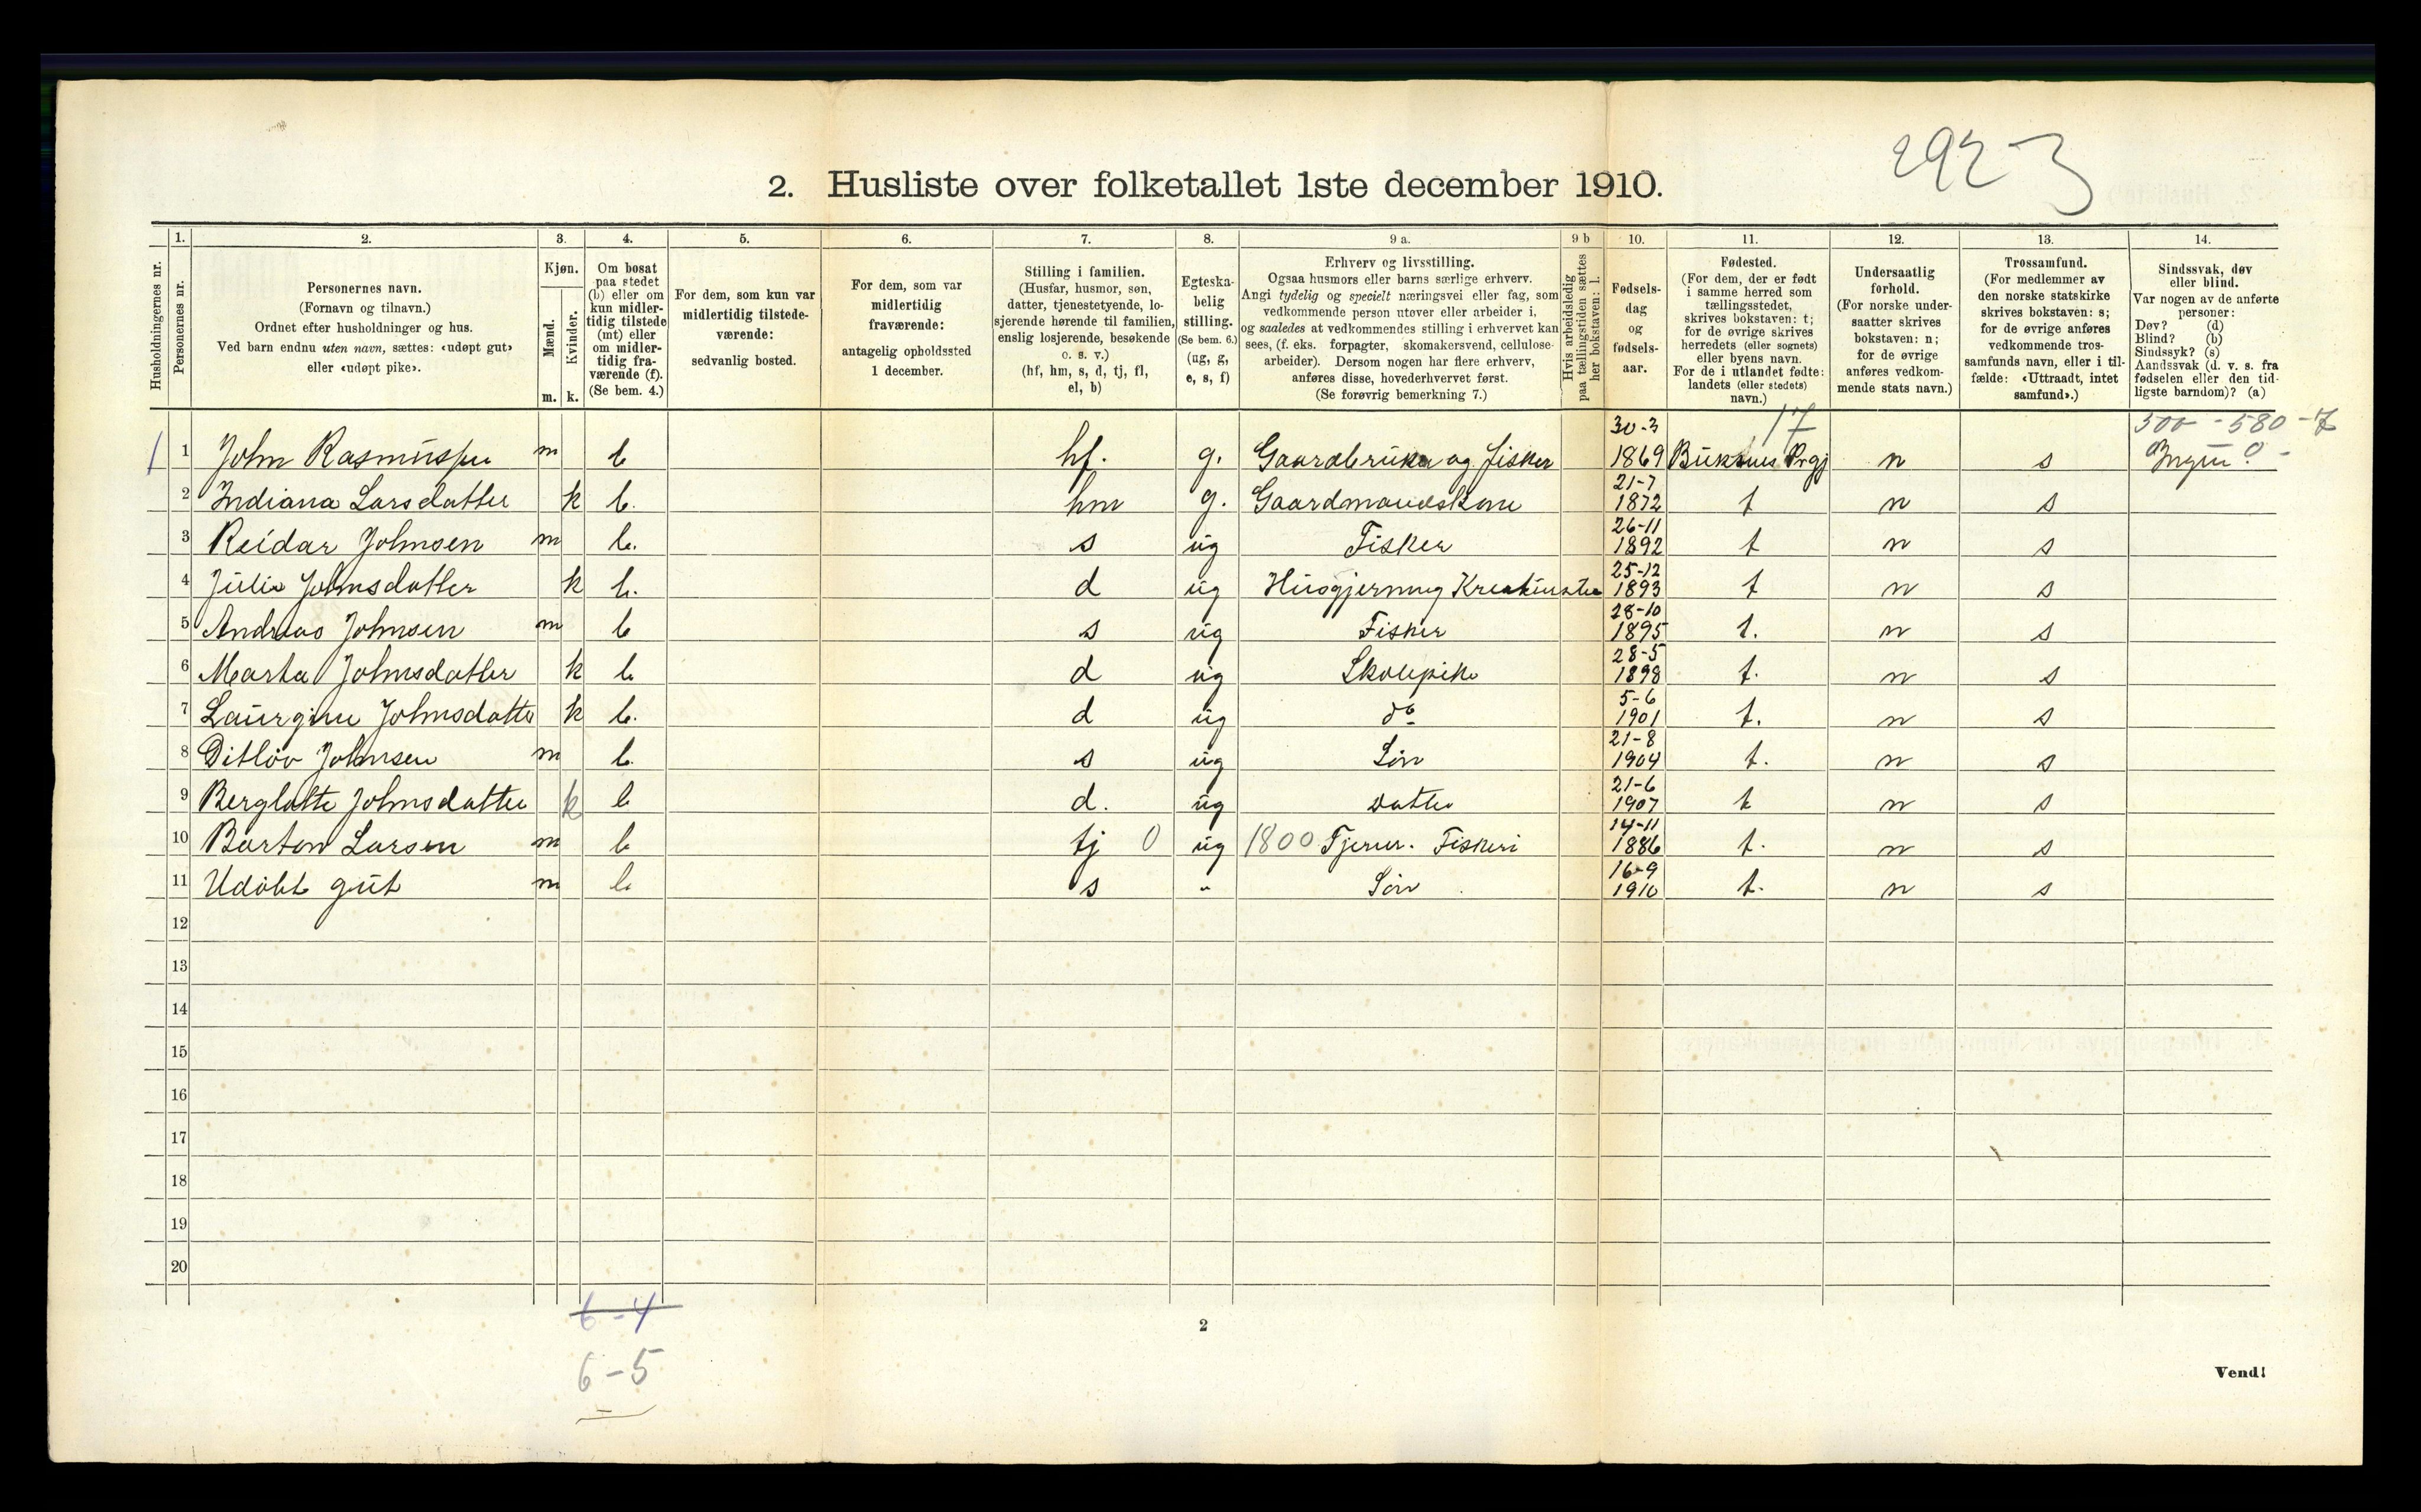 292-3
2. Husliste over folketallet 1ste december 1910.
1. 2. 3. 4. 5. 6. 7. 8. 9 a. 9 b 10. 11. 12. 13. 14.
Husholdningernes nr.
Personernes nr.
Personernes navn.
(Fornavn og tilnavn.)
Ordnet efter husholdninger og hus.
Ved barn endnu uten navn, sættes: «udøpt gut»
eller «udøpt pike».
Kjøn.
Mænd.
Kvinder.
m. k.
Om bosat
paa stedet
(b) eller om
kun midler-
tidig tilstede
(mt) eller
om midler-
tidig fra-
værende (f).
(Se bem. 4.)
For dem, som kun var
midlertidig tilstede-
værende:
sedvanlig bosted.
For dem, som var
midlertidig
fraværende:
antagelig opholdssted
1 december.
Stilling i familien.
(Husfar, husmor, søn,
datter, tjenestetyende, lo-
sjerende hørende til familien,
enslig losjerende, besøkende
o. s. v.)
(hf, hm, s, d, tj, fl,
el, b)
Egteska-
belig
stilling.
(Se bem. 6.)
(ug, g,
e, s, f)
Erhverv og livsstilling.
Ogsaa husmors eller barns særlige erhverv.
Angi tydelig og specielt næringsvei eller fag, som
vedkommende person utøver eller arbeider i,
og saaledes at vedkommendes stilling i erhvervet kan
sees, (f. eks. forpagter, skomakersvend, cellulose-
arbeider). Dersom nogen har flere erhverv,
anføres disse, hovederhvervet først.
(Se forøvrig bemerkning 7.)
Hvis arbeidsledig
paa tællingstiden sættes
her bokstaven: l.
Fødsels-
dag
og
fødsels-
aar.
Fødested.
(For dem, der er født
i samme herred som
tællingsstedet,
skrives bokstaven: t;
for de øvrige skrives
herredets (eller sognets)
eller byens navn.
For de i utlandet fødte:
landets (eller stedets)
navn.)
Undersaatlig
forhold.
(For norske under-
saatter skrives
bokstaven: n;
for de øvrige
anføres vedkom-
mende stats navn.)
Trossamfund.
(For medlemmer av
den norske statskirke
skrives bokstaven: s;
for de øvrige anføres
vedkommende tros-
samfunds navn, eller i til-
fælde: «Uttraadt, intet
samfund».)
Sindssvak, døv
eller blind.
Var nogen av de anførte
personer:
Døv? (d)
Blind? (b)
Sindssyk? (s)
Aandssvak (d. v. s. fra
fødselen eller den tid-
ligste barndom)? (a)
17 500 - 580 - 7
1 1 John Rasmussen m b hf. g. Gaardbruker og fisker 30-3 1869 Buksnes Prgj n s Ingen 0 -
2 Indiana Larsdatter k b. hm g. Gaardmandskone 21-7 1872 t n s
3 Reidar Johnsen m b. s ug Fisker 26-11 1892 t n s
4 Julie Johnsdatter k b. d ug Husgjerning Kreaturstel 25-12 1893 t n s
5 Andreas Johnsen m b s ug Fisker 28-10 1895 t. n s
6 Marta Johnsdatter k b d ug Skolepike 28-5 1898 t. n s
7 Laurgine Johnsdatter k b. d ug do 5-6 1901 t. n s
8 Ditløv Johnsen m b. s ug Søn 21-8 1904 t. n s
9 Berglotte Johnsdatter k b d. ug Datter 21-6 1907 t n s
10 Barton Larsen m b tj 0 ug 1800 Tjener. Fiskeri 14-11 1886 t. n s
11 Udöbt gut m b s " Søn 16-9 1910 t. n s
12
13
14
15
16
17
18
19
20
6-4
2
6-5
Vend!